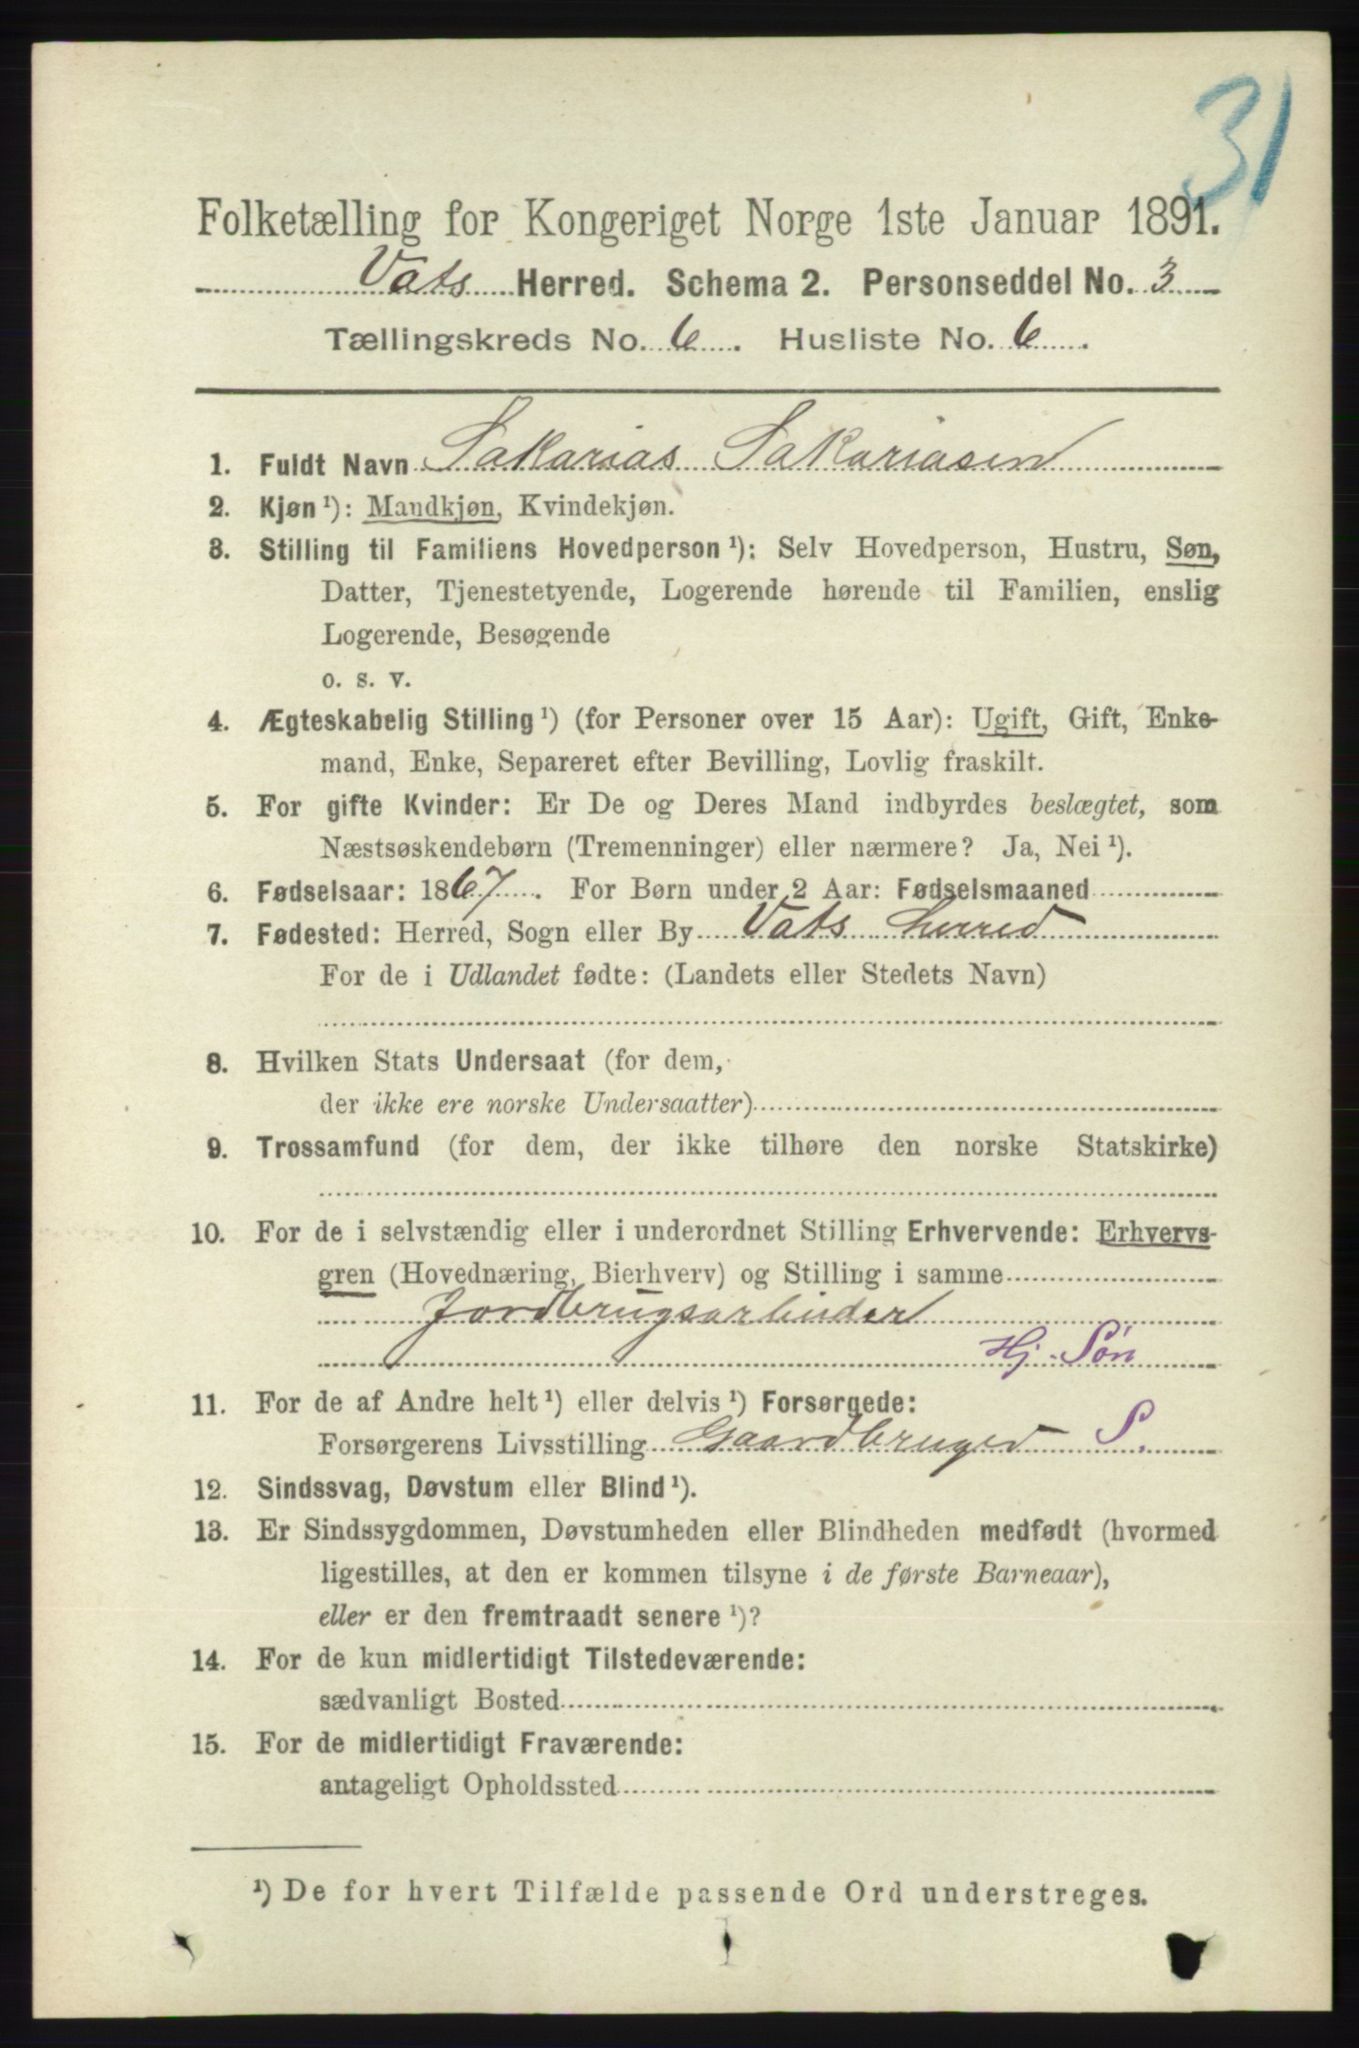 31
Folketælling for Kongeriget Norge 1ste Januar 1891.
Vats Herred. Schema 2. Personseddel No. 3
Tællingskreds No. 6. Husliste No. 6.
1. Fuldt Navn Sakarias Sakariasen
2. Kjøn¹): Mandkjøn, Kvindekjøn.
3. Stilling til Familiens Hovedperson¹): Selv Hovedperson, Hustru, Søn,
Datter, Tjenestetyende, Logerende hørende til Familien, enslig
Logerende, Besøgende
o. s. v.
4. Ægteskabelig Stilling¹) (for Personer over 15 Aar): Ugift, Gift, Enke-
mand, Enke, Separeret efter Bevilling, Lovlig fraskilt.
5. For gifte Kvinder: Er De og Deres Mand indbyrdes beslægtet, som
Næstsøskendebørn (Tremenninger) eller nærmere? Ja, Nei¹).
6. Fødselsaar: 1867. For Børn under 2 Aar: Fødselsmaaned
7. Fødested: Herred, Sogn eller By Vats herred
For de i Udlandet fødte: (Landets eller Stedets Navn)
8. Hvilken Stats Undersaat (for dem,
der ikke ere norske Undersaatter)
9. Trossamfund (for dem, der ikke tilhøre den norske Statskirke)
10. For de i selvstændig eller i underordnet Stilling Erhvervende: Erhvervs-
gren (Hovednæring, Bierhverv) og Stilling i samme
Jordbrugsarbeider
Hj. Søn
11. For de af Andre helt¹) eller delvis¹) Forsørgede:
Forsørgerens Livsstilling Gaardbruger S.
12. Sindssvag, Døvstum eller Blind¹).
13. Er Sindssygdommen, Døvstumheden eller Blindheden medfødt (hvormed
ligestilles, at den er kommen tilsyne i de første Barneaar),
eller er den fremtraadt senere¹)?
14. For de kun midlertidigt Tilstedeværende:
sædvanligt Bosted
15. For de midlertidigt Fraværende:
antageligt Opholdssted
¹) De for hvert Tilfælde passende Ord understreges.